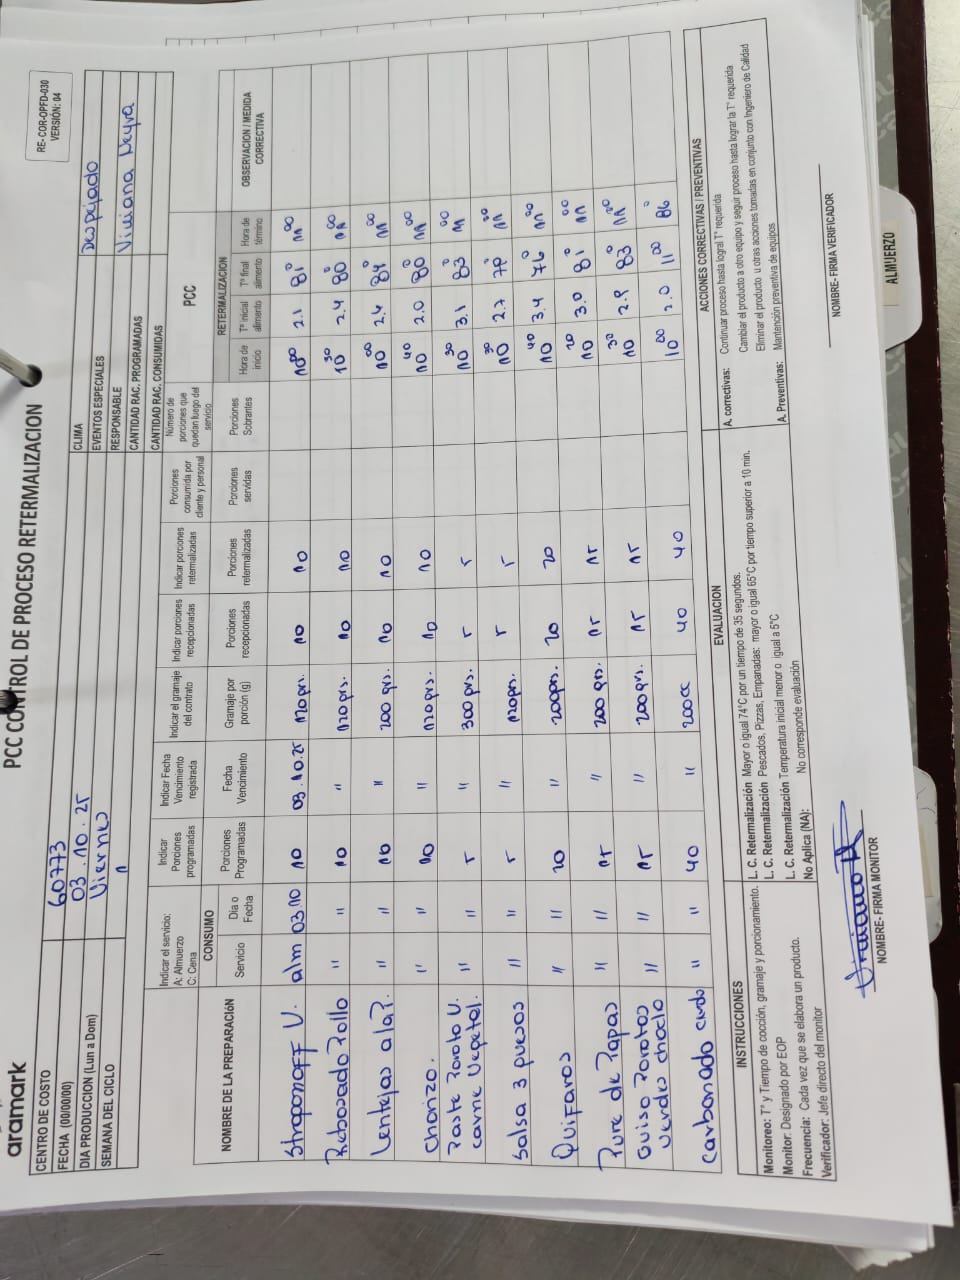 aramark
PCC CONTROL DE PROCESO RETERMALIZACION
RE- COR-OPFD-030
VERSIÓN: 04
CENTRO DE COSTO 60773
FECHA (00/00/00) 03.10.25
DIA PRODUCCION (Lun a Dom) Viernes
SEMANA DEL CICLO 1
CLIMA Despejado
EVENTOS ESPECIALES
RESPONSABLE Viviana Neyra
CANTIDAD RAC. PROGRAMADAS
CANTIDAD RAC. CONSUMIDAS
Indicar el servicio:
A: Almuerzo
C: Cena
Indicar Porciones programadas
Indicar Fecha Vencimiento registrada
Indicar el gramaje del contrato
Indicar porciones recepcionadas
Indicar porciones retermalizadas
Porciones consumida por cliente y personal
Número de porciones que quedan luego del servicio
PCC
NOMBRE DE LA PREPARACIóN
CONSUMO
RETERMALIZACION
OBSERVACION / MEDIDA CORRECTIVA
Servicio Dia o Fecha Porciones Programadas Fecha Vencimiento Gramaje por porción (g) Porciones recepcionadas Porciones retermalizadas Porciones servidas Porciones Sobrantes Hora de inicio T° inicial alimento T° final alimento Hora de término
Stroponoff V. alm 03.10 10 03.10.25 120grs. 10 10 10 00 2.1 81° 11 00
Rebosado Pollo " " 10 " 120grs. 10 10 10 30 2.4 80° 11 00
Lentejas a la P. " " 10 " 200 grs. 10 10 10 00 2.4 84° 11 00
Chorizo. " " 10 " 120grs. 10 10 10 40 2.0 80° 11 00
Paste Poroto V. carne Vegetal. " " 5 " 300grs. 5 5 10 30 3.1 83° 11 00
Salsa 3 quesos " " 5 " 120grs. 5 5 10 30 2.7 78° 11 00
Quifaros " " 20 " 200grs. 20 20 10 40 3.4 76° 11 00
Pure de Papas " " 15 " 200 grs. 15 15 10 20 3.0 81° 11 00
Guiso Porotos Verdes choclo " " 15 " 200grs. 15 15 10 30 2.9 83° 11 00
Carbonada cerdo " " 40 " 200cc 40 40 10 00 2.0 11 00 86°
INSTRUCCIONES
Monitoreo: T° y Tiempo de cocción, gramaje y porcionamiento.
Monitor: Designado por EOP
Frecuencia: Cada vez que se elabora un producto.
Verificador: Jefe directo del monitor
EVALUACION
L. C. Retermalización Mayor o igual 74°C por un tiempo de 35 segundos.
L. C. Retermalización Pescados, Pizzas, Empanadas: mayor o igual 65°C por tiempo superior a 10 min.
L. C. Retermalización Temperatura inicial menor o igual a 5°C
No Aplica (NA): No corresponde evaluación
ACCIONES CORRECTIVAS / PREVENTIVAS
A. correctivas: Continuar proceso hasta logral T° requerida
Cambiar el producto a otro equipo y seguir proceso hasta lograr la T° requerida
Eliminar el producto u otras acciones tomadas en conjunto con Ingeniero de Calidad
A. Preventivas: Mantención preventiva de equipos
NOMBRE- FIRMA MONITOR
NOMBRE- FIRMA VERIFICADOR
ALMUERZO